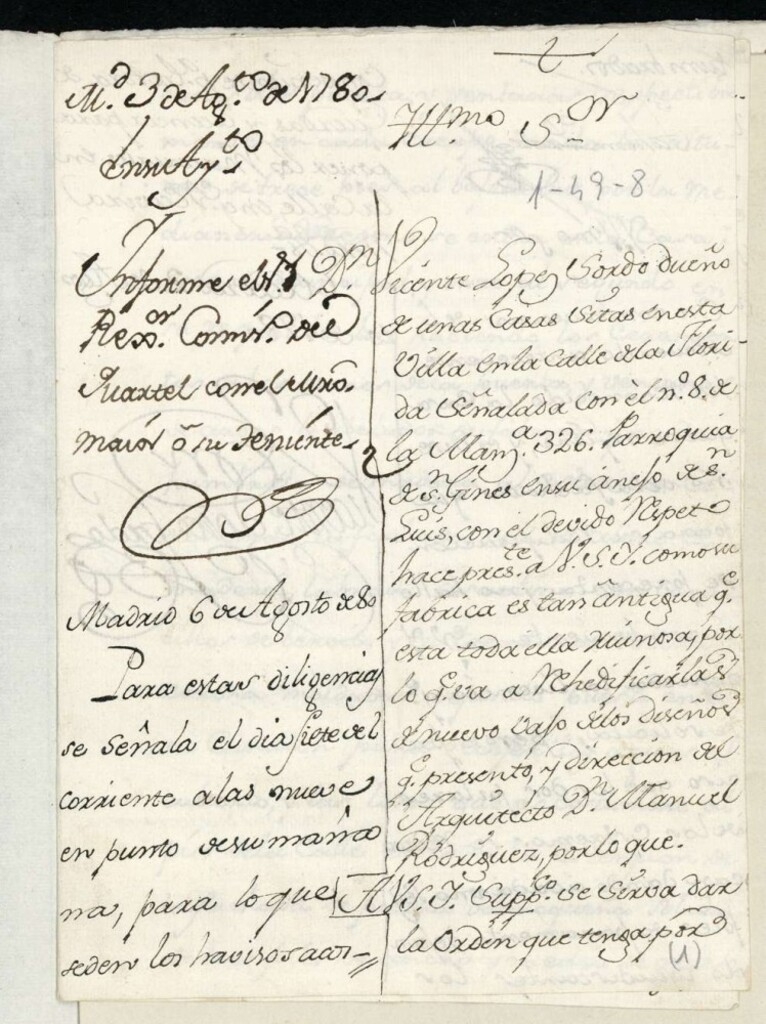 M.d 3 de Ag.to de 1780
En su Ay.to
Informe el S.r D.n
Rex.or Comis.o del
Quartel con el Mro.
maior ô su Teniente
Madrid 6 de Agosto de 80
Para estas diligencias
se señala el dia siete del
corriente a las nueve
en punto de su maña
na, para lo que
se den los havisos acos-
Ill.mo S.or
1-49-8
Vicente Lopez Sordo dueño
de unas Casas Sitas en esta
Villa en la Calle de la Flori-
da Señalada con èl n.o 8. de
la Man.a 326. Parroquia
de S.n Gines en su anejo de S.n
Luis, con el devido Respeto
hace pres.te a V.S.I. como su
fabrica es tan antigua q.e
esta toda ella Ruinosa, por
lo q.e va a Rehedificarlas
de nuevo vajo de los diseños
q.e presento, y direccion del
Arquitecto D.n Manuel
Rodriguez, por lo que.
A V.S.I. Supp.co Se Sirva dar
la Orden que tenga por
(1)